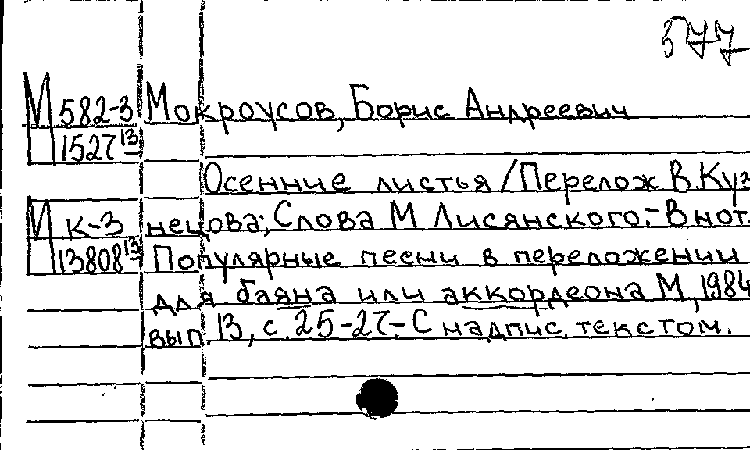 577
М 582-3 Мокроусов, Борис Андреевич
1527 13
Осенние листья / Перелож В. Куз
М к-3 нецова; Слова М Лисянского.- В нот.
13808 13 Популярные песни в переложении
для баяна или аккордеона М, 1984
вып. 13, с 25-27.- С надпис. текстом.